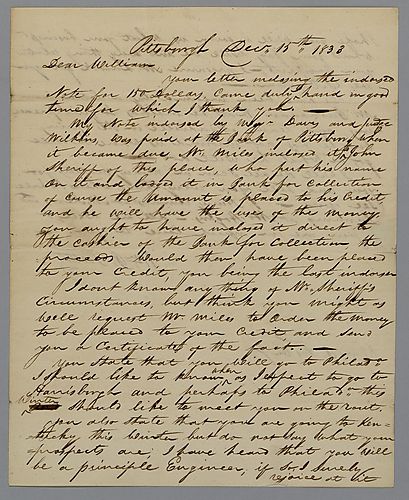 Pittsburgh Decr. 15th. 1833
Dear William
Your letter inclosing the indorsed
Note for 150 Dollars, Came duly to hand in good
time for which I thank you. —
My Note indorsed by Majr. Davis and Judge
Wilkins, was paid at the Bank of Pittsburg when
it became due, Mr. Miles inclosed it to John
Sheriff of this place, who put his name
on it and lodged it in Bank for Collection
of Course the Amount is placed to his Credit
and he will have the use of the Money
you ought to have inclosed it direct to
the Cashier of the Bank for Collection the
proceeds would then have been placed
to your Credit, you being the last indorser
I dont know any thing of Mr. Sheriff's
Circumstances, but think you might as
well request Mr Miles to Order the Money
to be placed to your Credit and send
you a Certificate of the fact. —
You State that you will go to Philada.
I should like to know when as I expect to go to
Harrisburgh and perhaps to Philada. this
Winter Should like to meet you on the rout,
you also state that you are going to Ken-
tucky this Winter but do not say What your
prospects are; I have heard that you Will
be a principle Engineer, if So I Surely
rejoice at it